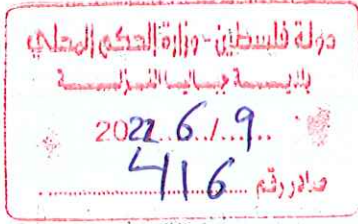 دولة فلسطين - وزارة الحكم المحلي
بلديـــة جباليا النزلـــة
2022 6 / 9
صادر رقم 416